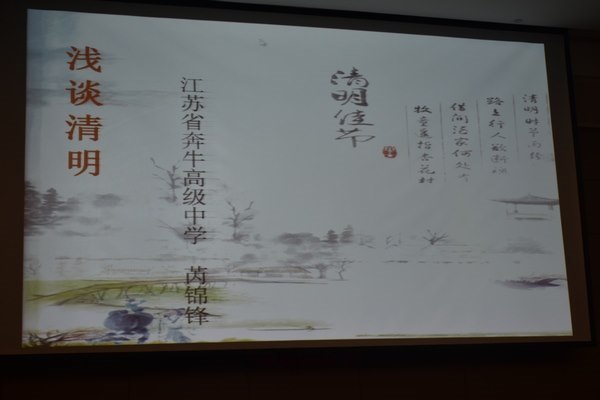 浅谈清明
江苏省奔牛高级中学 芮锦锋
清明佳节
清明时节雨纷纷
路上行人欲断魂
借问酒家何处有
牧童遥指杏花村